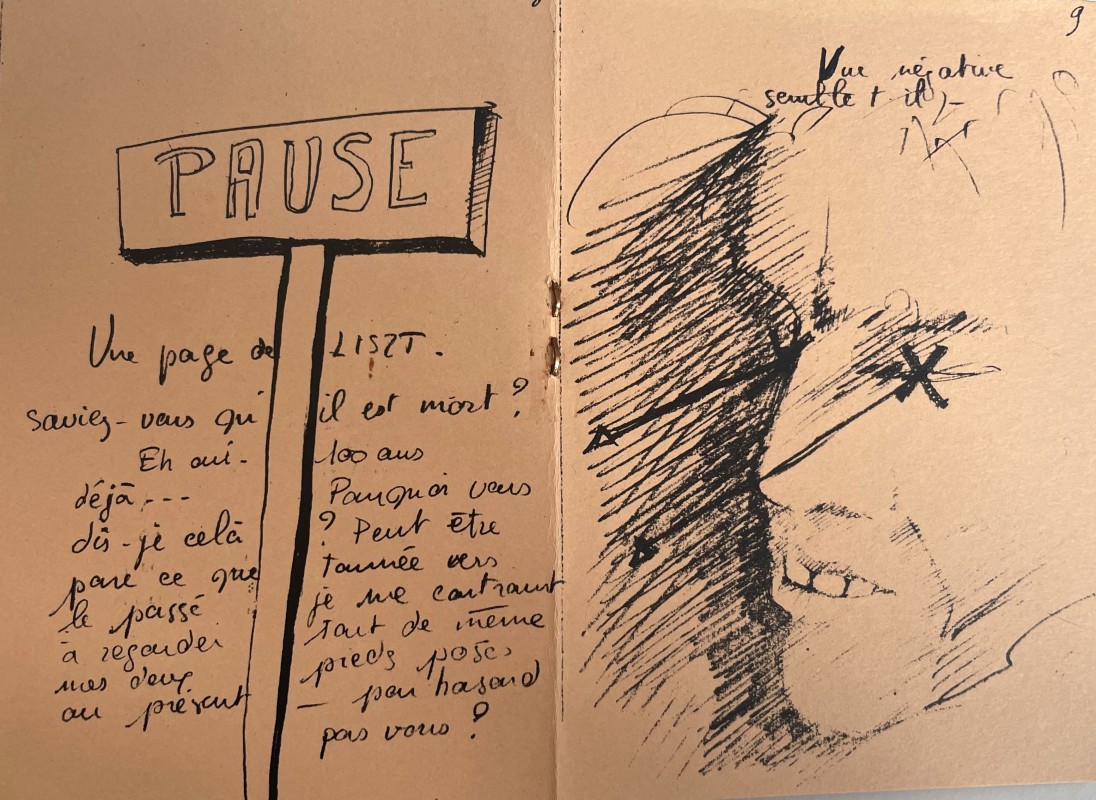 PAUSE
Une page de LISZT.
saviez-vous qu'il est mort ?
Eh oui - 100 ans
déjà --- Pourquoi vous
dis-je celà ? Peut être
parce ce que tournée vers
le passé je me contraint
à regarder tout de même
mes deux pieds posés
au présent — par hasard
pas vous ?
9
Vue négative
semble t il -